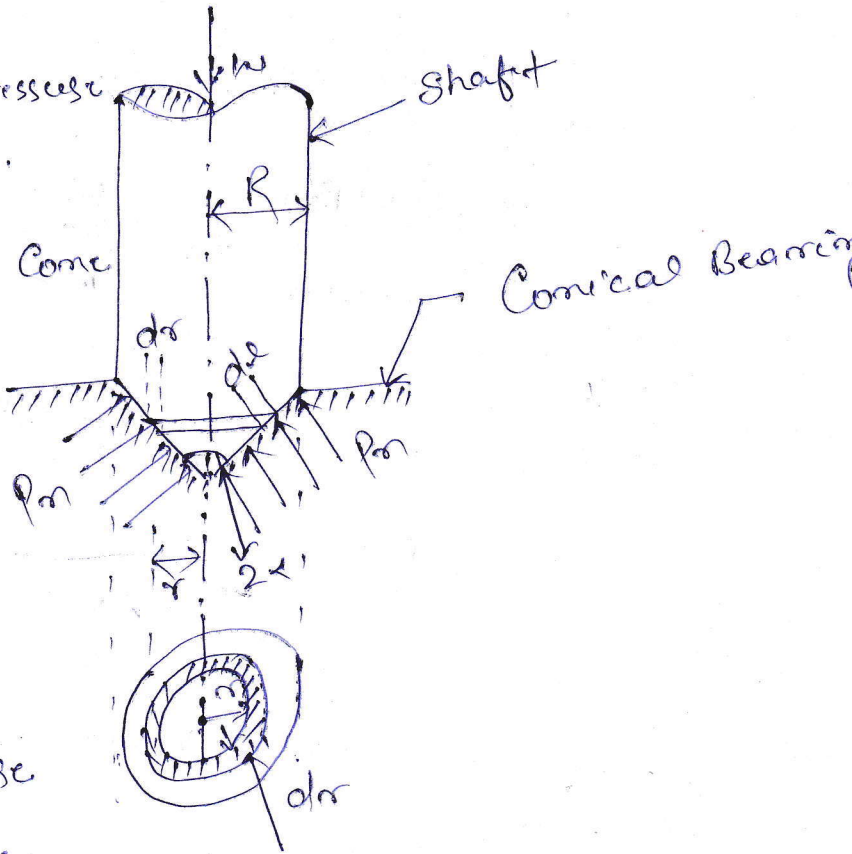 W
shaft
R
Cone
Conical Bearin
dr
dl
Pn
Pn
r
2α
r
dr